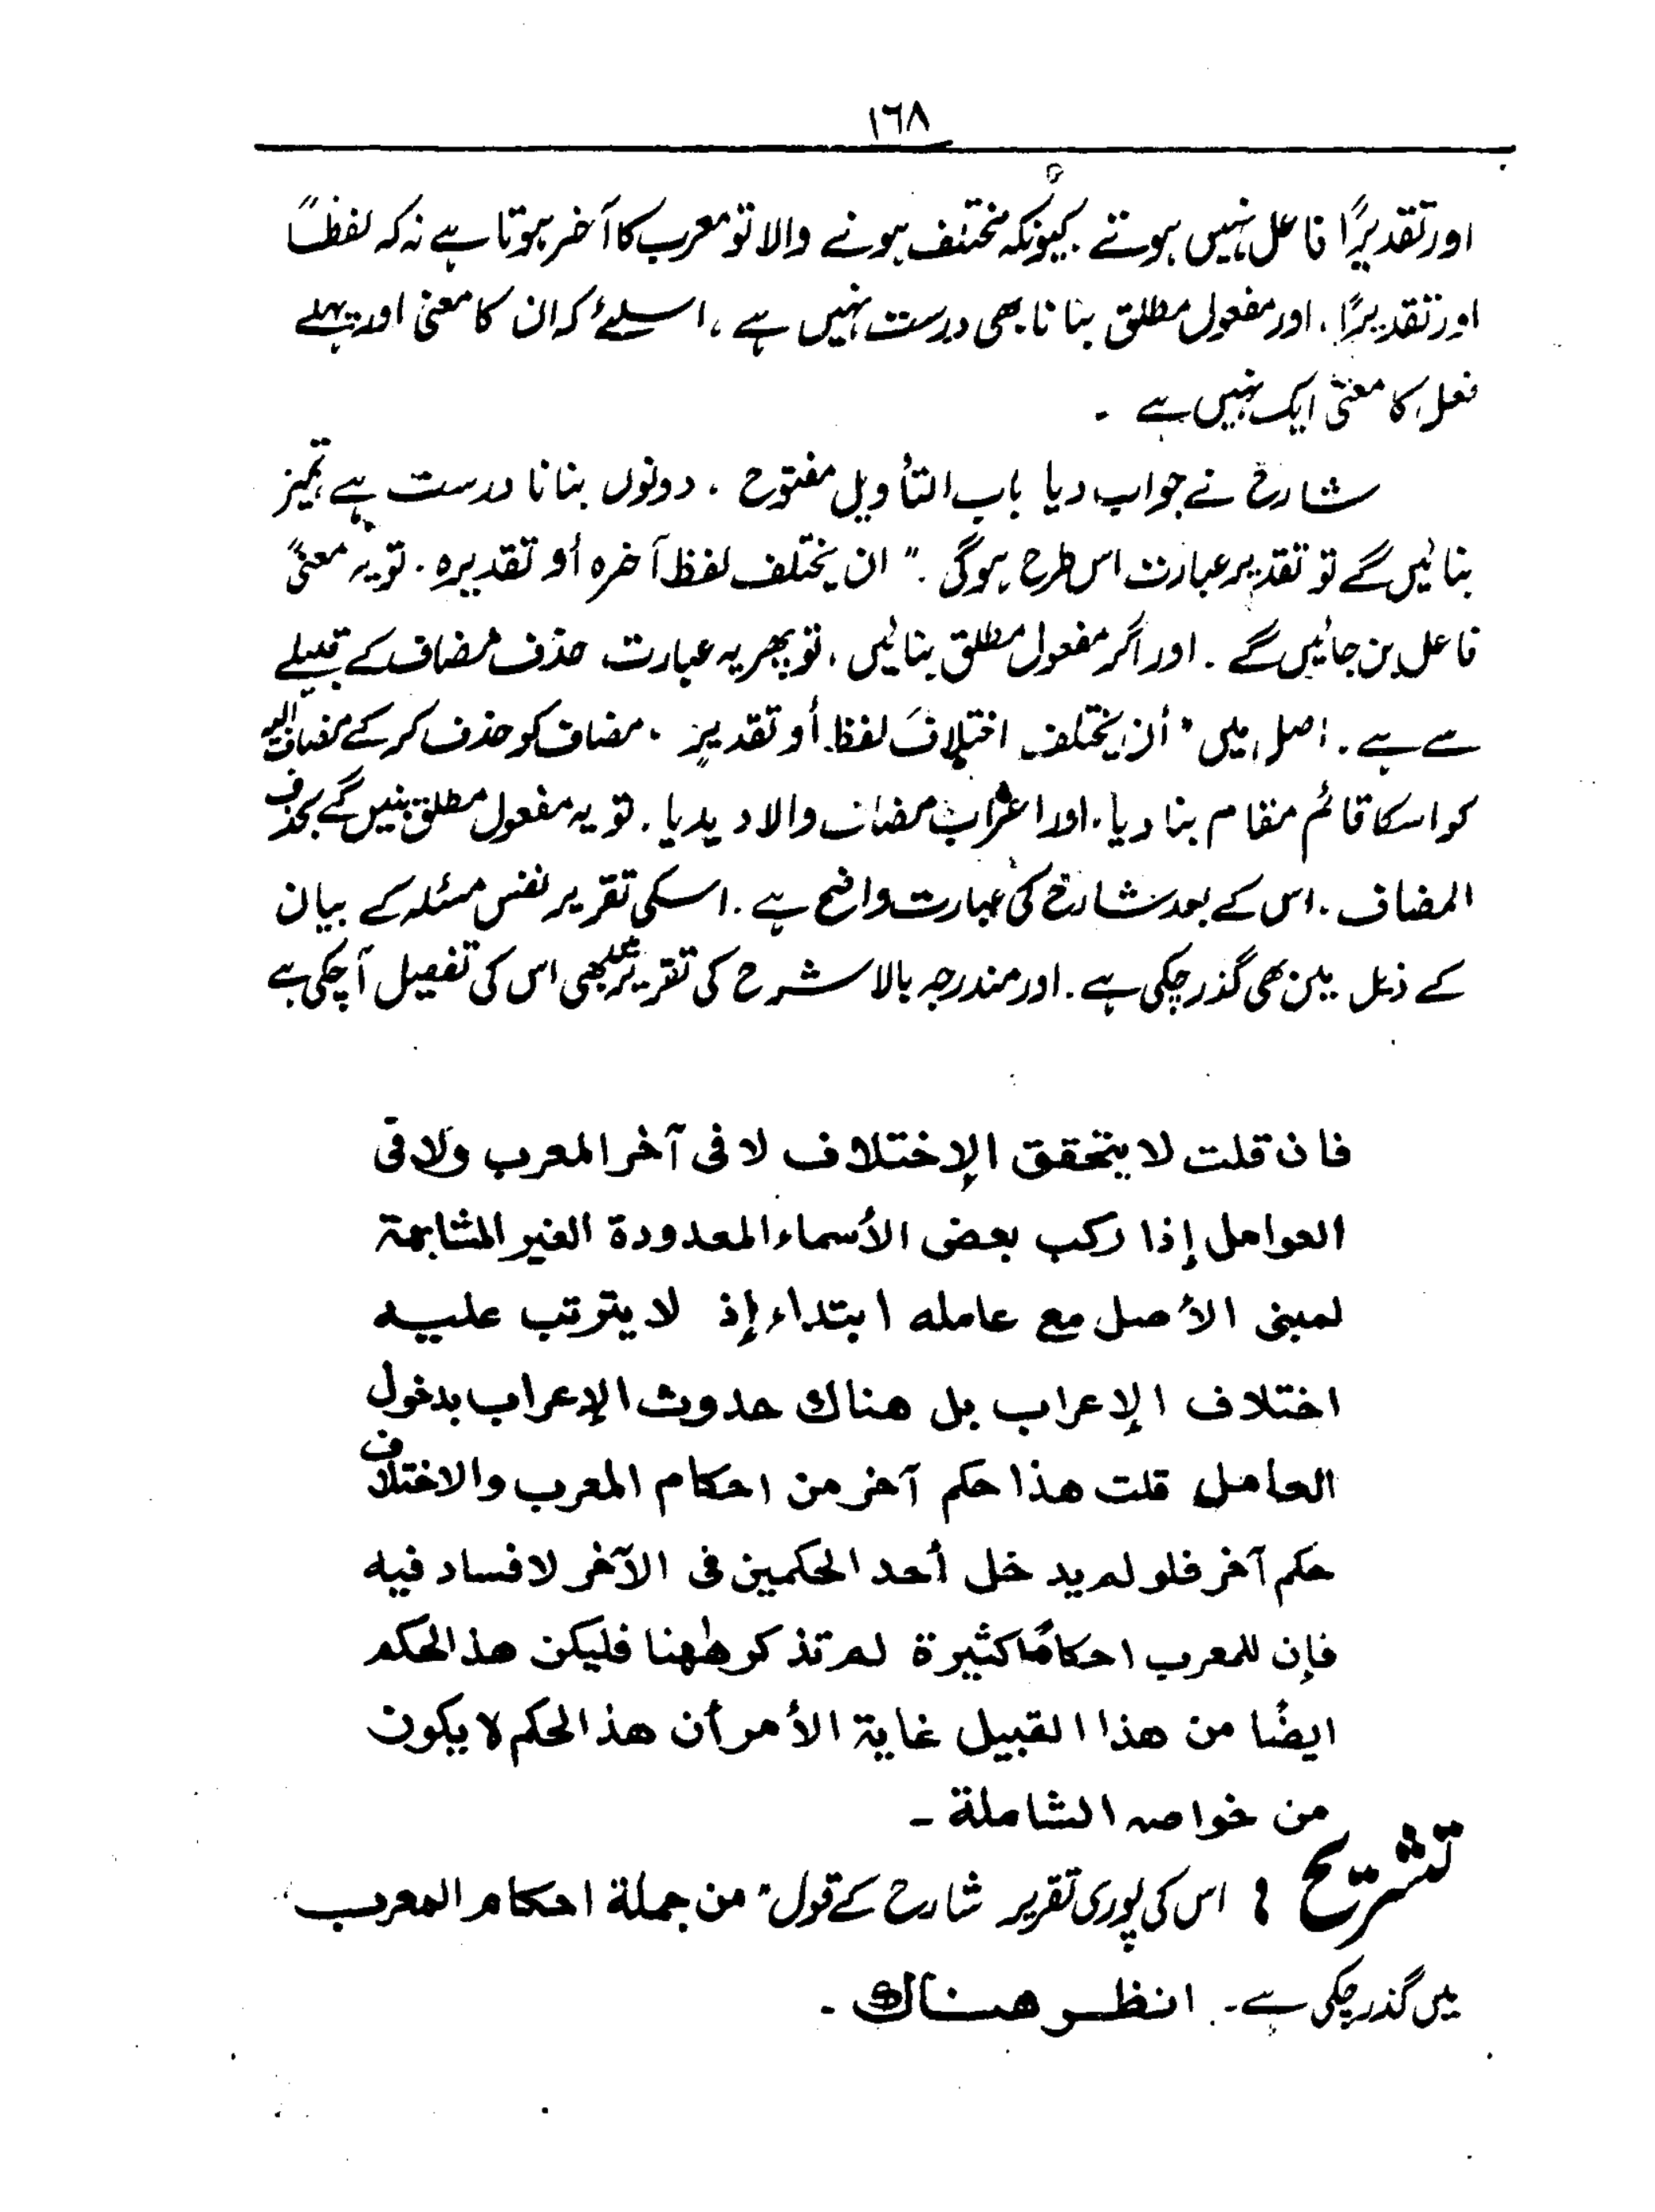 ١٦٨
اور تقدیرًا فاعل نہیں ہوتے . کیونکہ مختلف ہونے والا تو معرب کا آخر ہوتا ہے نہ کہ لفظًا
اور تقدیرًا ، اور مفعول مطلق بنانا بھی درست نہیں ہے ، اسلئے کہ ان کا معنی اور پہلے
فعل کا معنی ایک نہیں ہے ۔
شارح نے جواب دیا باب التأویل مفتوح ، دونوں بنانا درست ہے ، تمیز
بنائیں گے تو تقدیر عبارت اس طرح ہوگی ." ان یختلف لفظ آخرہ أو تقدیرہ . تو یہ معنیً
فاعل بن جائیں گے . اور اگر مفعول مطلق بنائیں ، تو پھر یہ عبارت حذف مضاف کے قبیلے
سے ہے . اصل میں " أن یختلف اختلافَ لفظ أو تقدیرٍ ، مضاف کو حذف کر کے مضاف الیہ
کو اسکا قائم مقام بنا دیا ، اور اعراب مضاف والا دیدیا . تو یہ مفعول مطلق بنیں گے بحذف
المضاف . اس کے بعد شارح کی عبارت واضح ہے . اسکی تقریر نفس مسئلہ کے بیان
کے ذیل میں بھی گذر چکی ہے . اور مندرجہ بالا شرح کی تقریر میں بھی اس کی تفصیل آچکی ہے
فان قلت لا یتحقق الإختلاف لا فی آخر المعرب ولا فی
العوامل إذا رکب بعض الأسماء المعدودة الغیر المشابهة
لمبنی الأصل مع عامله ابتداء إذ لا یترتب علیه
اختلاف الإعراب بل هناك حدوث الإعراب بدخول
العامل قلت هذا حکم آخر من احکام المعرب والاختلاف
حکم آخر فلو لم یدخل أحد الحکمین فی الآخر لا فساد فیه
فإن للمعرب احکامًا کثیرة لم تذکر ههنا فلیکن هذ الحکم
ایضًا من هذا القبیل غایة الأمر أن هذ الحکم لا یکون
من خواصه الشاملة ۔
تشریح : اس کی پوری تقریر شارح کے قول " من جملة احکام المعرب ،
میں گذر چکی ہے ۔ انظر هناك ۔